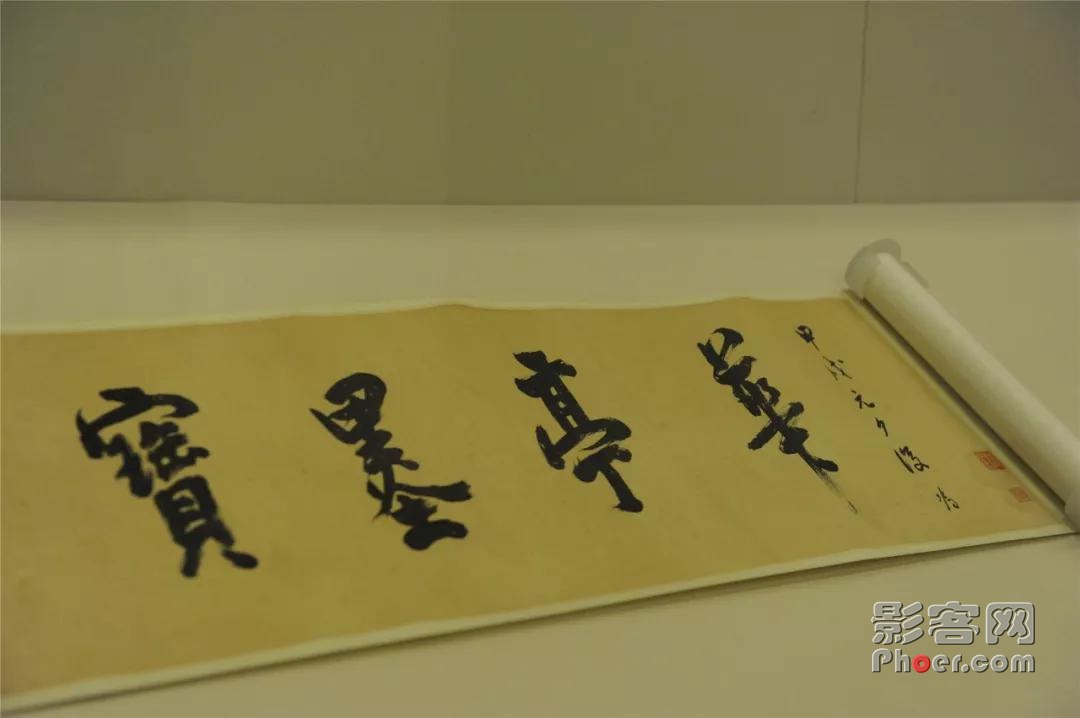 甲戌元夕後
華亭墨寶
影客网
Phoer.com